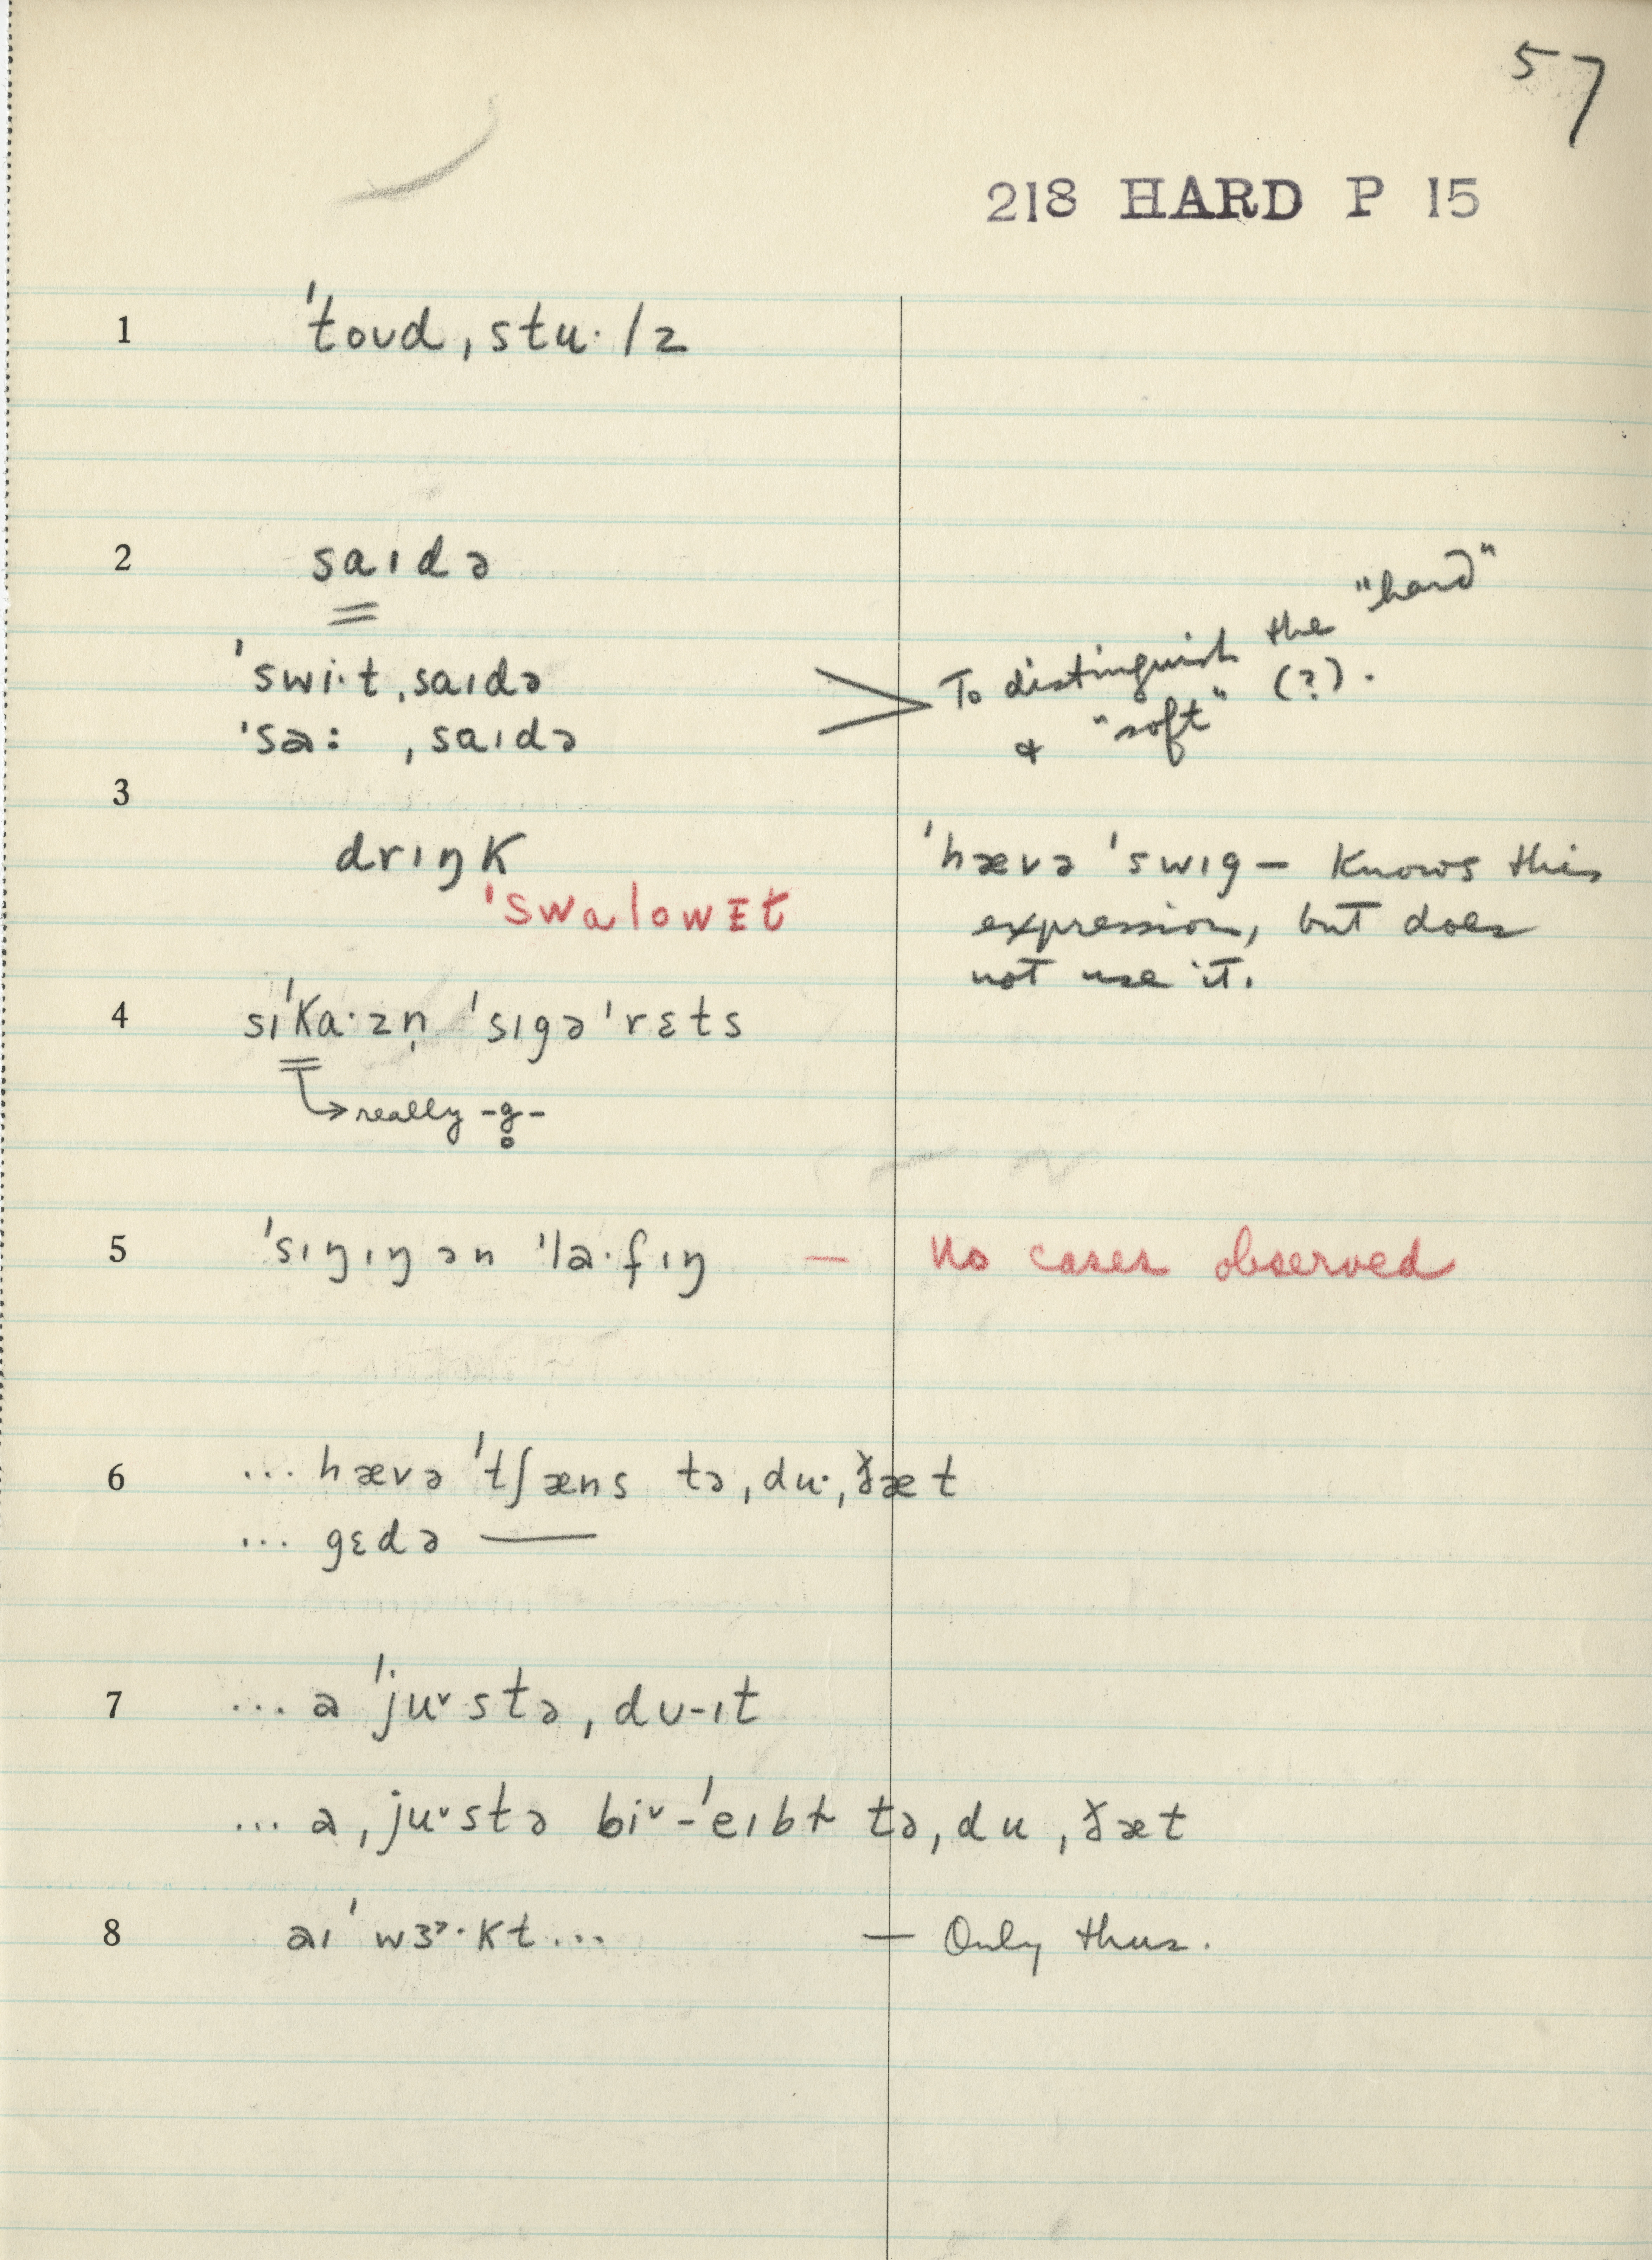 57
218 HARD P 15
1 ˈtoʊd ˌstuˑlz
2 saɪdə
ˈswiˑt ˌsaɪdə
ˈsaː ˌsaɪdə
To distinguish the "hard"
& "soft" (?).
3
drɪŋk
ˈswalowɪt
ˈhævə ˈswɪg – Knows this
expression, but does
not use it.
4 sɪˈkaˑzn̩ ˈsɪgəˈrɛts
→ really -g̥-
5 ˈsɪŋɪŋ ən ˈlaˑfɪŋ — No cases observed
6 ... hævə ˈtʃæns tə ˌduˑ ˌðæt
... gɛdə ——
7 ... a ˈjuᵛstə ˌdʊ-ɪt
... a ˌjuᵛstə biᵛ-ˈeɪbɫ tə ˌdu ˌðæt
8 aɪ ˈwɜˑkt ... — Only thus.